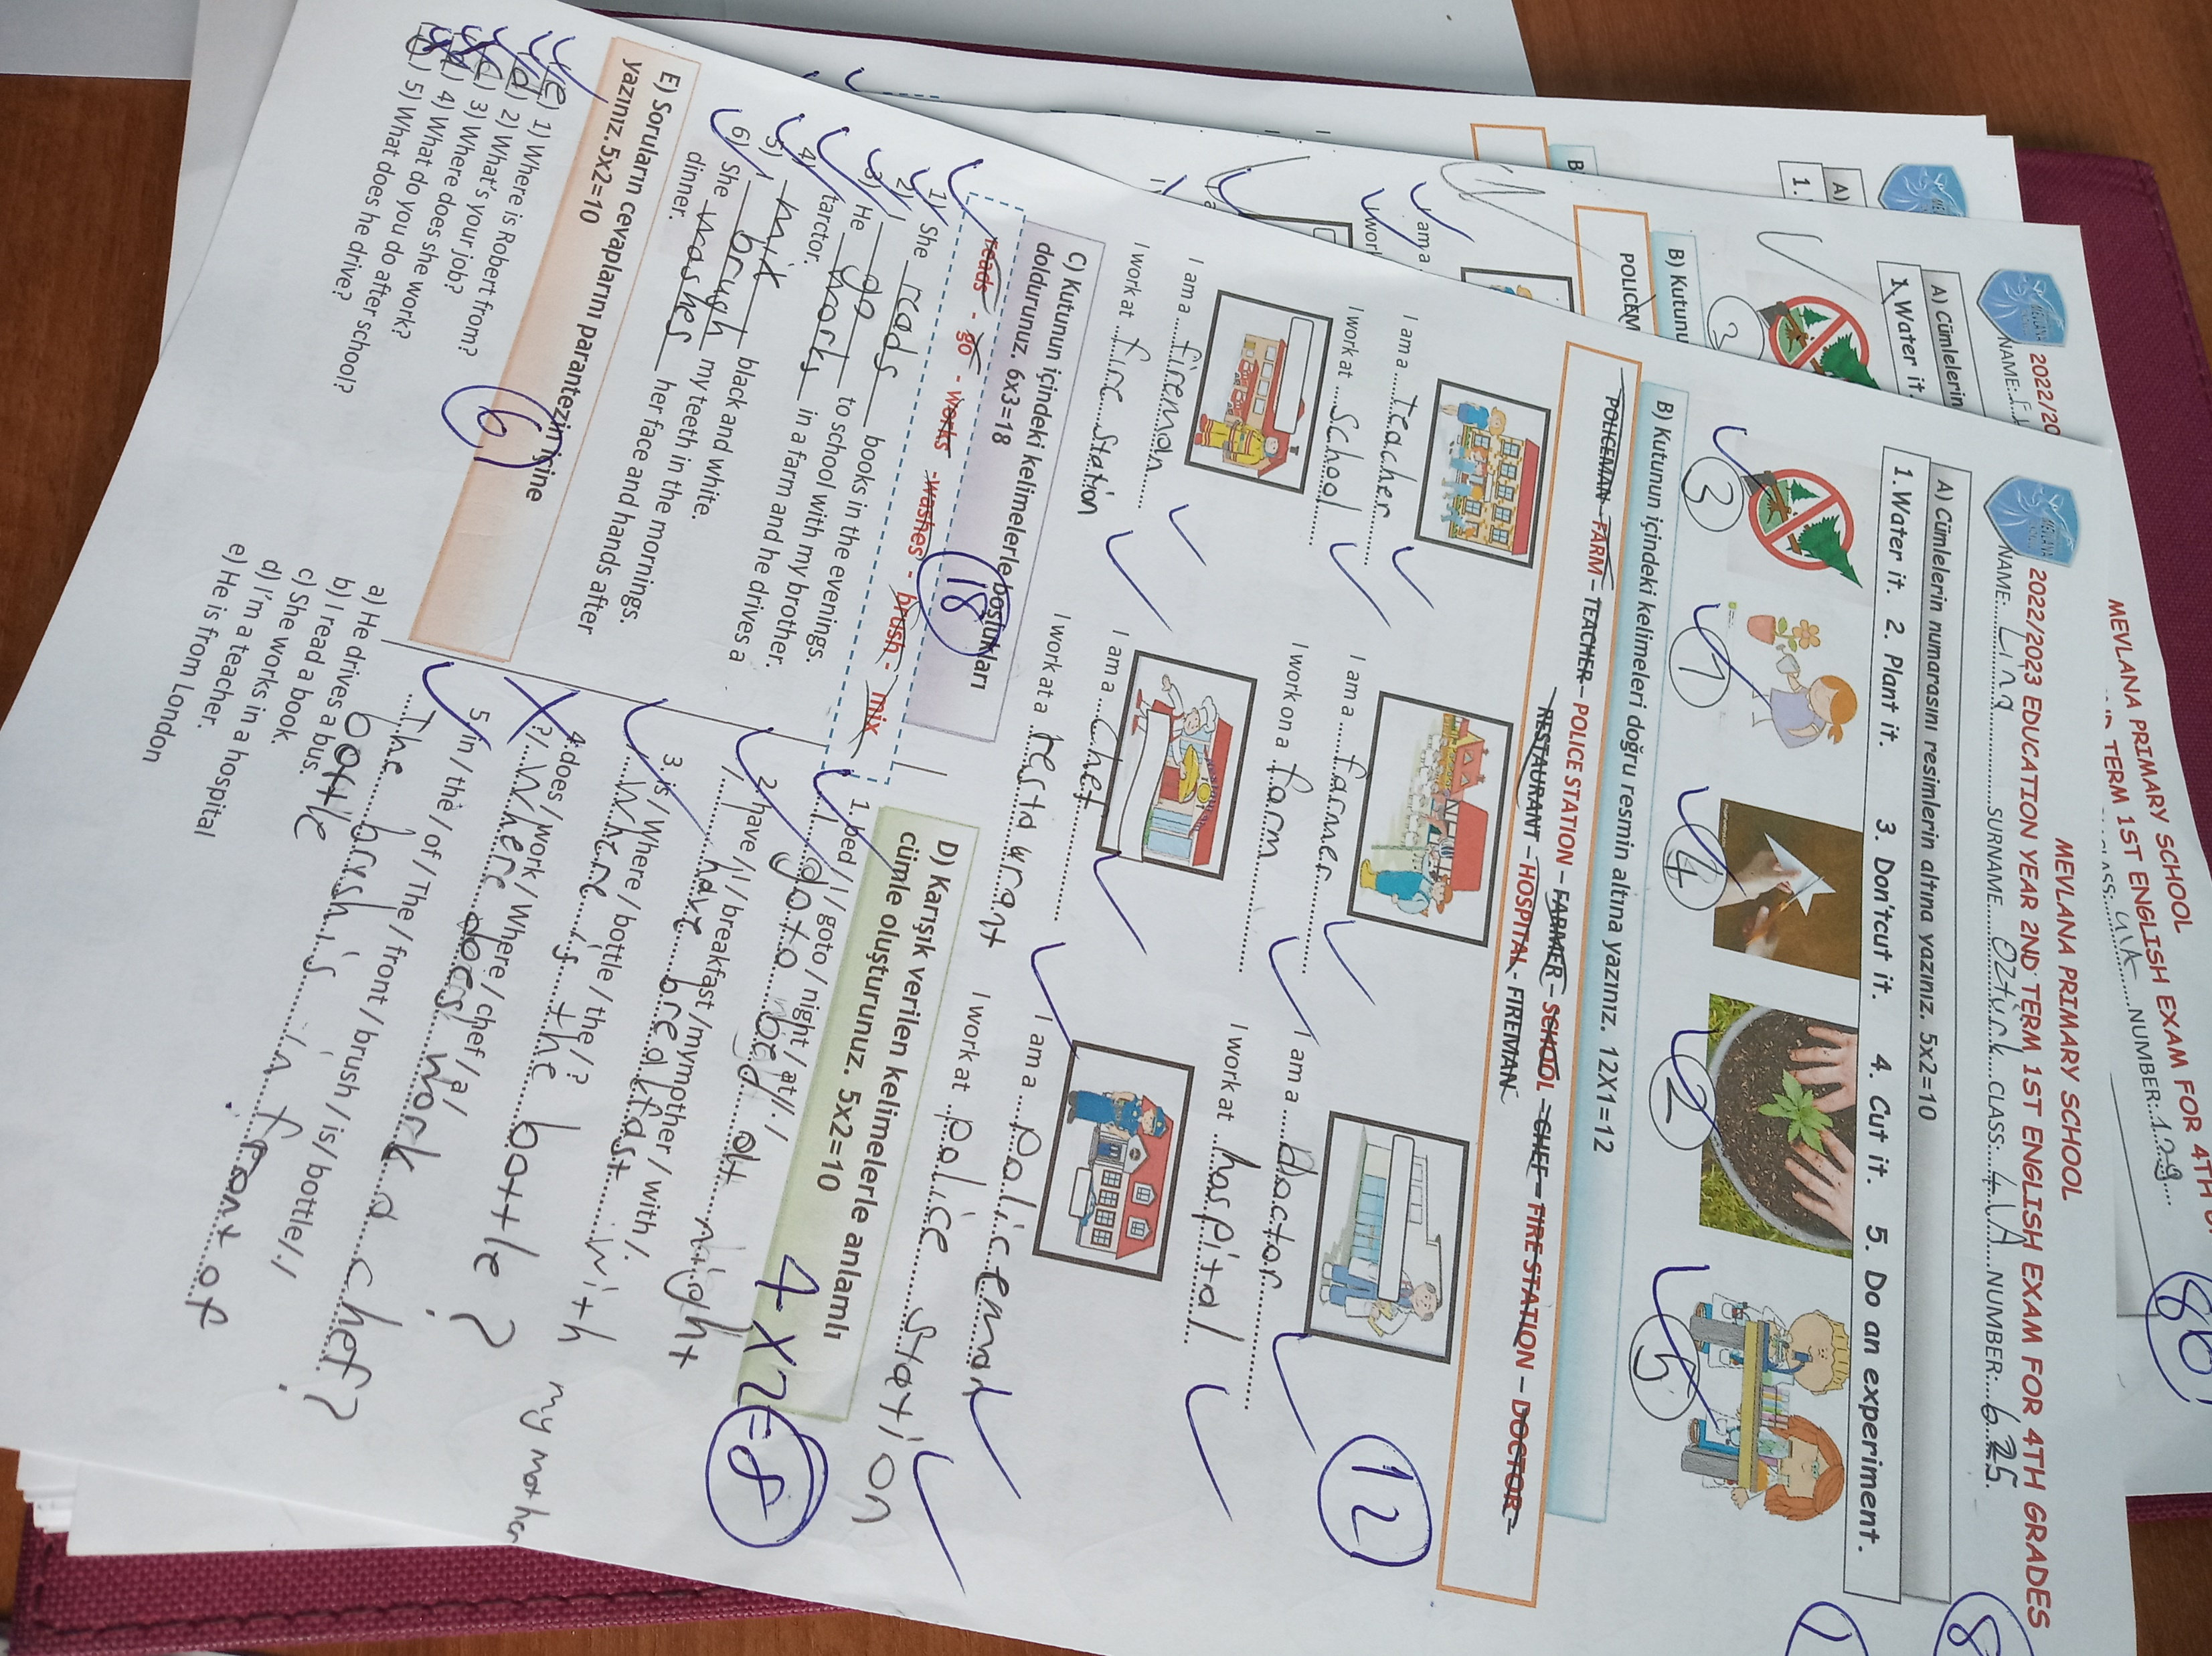 MEVLANA PRIMARY SCHOOL
TERM 1ST ENGLISH EXAM FOR 4TH
NUMBER:
86
2022/20
NAME:
A) Cümlelerin
1. Water it.
B) Kutunu
POLICEM
MEVLANA PRIMARY SCHOOL
2022/2023 EDUCATION YEAR 2ND TERM 1ST ENGLISH EXAM FOR 4TH GRADES
NAME: Lina SURNAME Öztürk CLASS: 4/A NUMBER: 625
A) Cümlelerin numarasını resimlerin altına yazınız. 5x2=10
1.Water it. 2. Plant it. 3. Don'tcut it. 4. Cut it. 5. Do an experiment.
3 1 4 2 5
B) Kutunun içindeki kelimeleri doğru resmin altına yazınız. 12X1=12
POLICEMAN - FARM – TEACHER – POLICE STATION – FARMER – SCHOOL – CHEF – FIRE STATION – DOCTOR –
RESTAURANT – HOSPITAL - FIREMAN
12
I am a teacher
I work at school
I am a farmer
I work on a farm
I am a doctor
I work at hospital
I am a fireman
I work at fire station
I am a chef
I work at a restaurant
I am a policeman
I work at police station
C) Kutunun içindeki kelimelerle boşlukları
doldurunuz. 6x3=18
18
reads - go - works - washes - brush - mix
1) She reads books in the evenings.
2) I go to school with my brother.
3) He works in a farm and he drives a
tarctor.
4) I mix black and white.
5) I brush my teeth in the mornings.
6) She washes her face and hands after
dinner.
D) Karışık verilen kelimelerle anlamlı
cümle oluşturunuz. 5x2=10
4x2=8
1. bed / I / goto / night / at / . /
I go to bed at night
2. have / I / breakfast / mymother / with / .
I have breakfast with my mother
3. is / Where / bottle / the / ?
Where is the bottle ?
4. does / work / Where / chef / a /
? / Where does work a chef ?
5. in / the / of / The / front / brush / is / bottle / . /
The brush is in front of
bottle
E) Soruların cevaplarını parantezin içine
yazınız. 5x2=10
6
(e) 1) Where is Robert from?
(d) 2) What's your job?
(c) 3) Where does she work?
4) What do you do after school?
5) What does he drive?
a) He drives a bus.
b) I read a book.
c) She works in a hospital
d) I'm a teacher.
e) He is from London